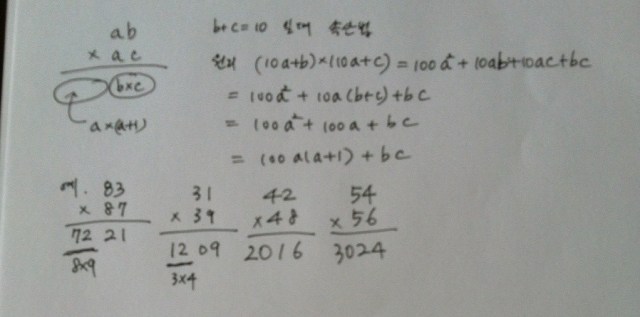 ab
× ac
b×c
a×(a+1)
b+c=10 일때 속산법
원리 (10a+b)×(10a+c) = 100a²+10ab+10ac+bc
= 100a²+10a(b+c)+bc
= 100a²+100a+bc
= 100a(a+1)+bc
예. 83
× 87
72 21
8×9
31
× 39
12 09
3×4
42
×48
2016
54
× 56
3024